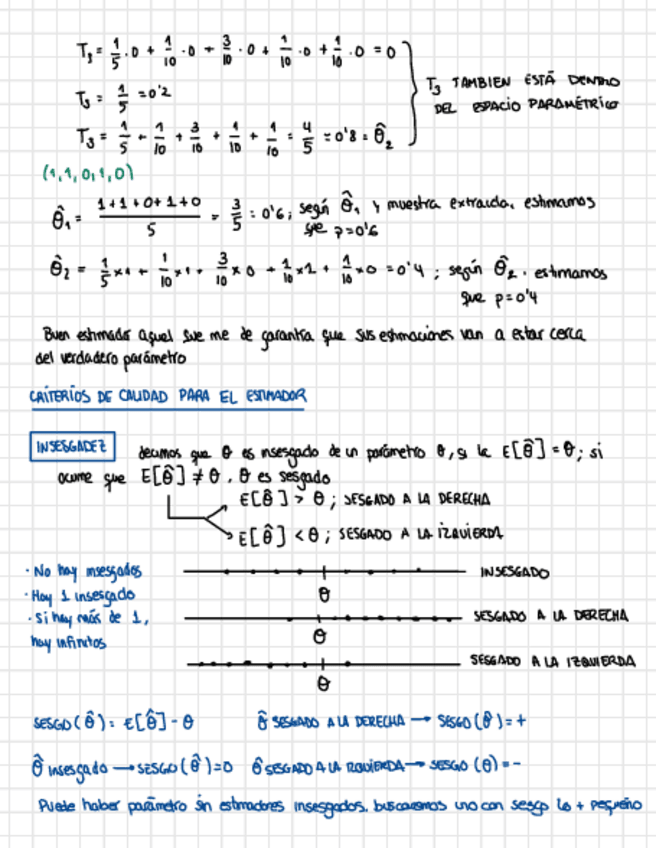 T₃ = 1/5 · 0 + 1/10 · 0 + 3/10 · 0 + 1/10 · 0 + 1/10 · 0 = 0
T₃ = 1/5 = 0'2
T₃ TAMBIEN ESTÁ DENTRO
DEL ESPACIO PARAMÉTRICO
T₃ = 1/5 + 1/10 + 3/10 + 1/10 + 1/10 = 4/5 = 0'8 = θ̂₂
(1,1,0,1,0)
θ̂₁ = (1+1+0+1+0)/5 = 3/5 = 0'6; según θ̂₁ y muestra extraída, estimamos
que p=0'6
θ̂₂ = 1/5 x1 + 1/10 x1 + 3/10 x 0 + 1/10 x1 + 1/10 x0 = 0'4 ; según θ̂₂ . estimamos
que p=0'4
Buen estimador aquel que me de garantía que sus estimaciones van a estar cerca
del verdadero parámetro
CRITERIOS DE CALIDAD PARA EL ESTIMADOR
INSESGADEZ decimos que θ es insesgado de un parámetro θ, si la E[θ̂] = θ; si
ocurre que E[θ̂] ≠ θ . θ es sesgado
E[θ̂] > θ ; SESGADO A LA DERECHA
E[θ̂] < θ ; SESGADO A LA IZQUIERDA
· No hay insesgados
· Hay 1 insesgado
· si hay más de 1,
hay infinitos
INSESGADO
θ
SESGADO A LA DERECHA
θ
SESGADO A LA IZQUIERDA
θ
SESGO (θ̂) = E[θ̂] - θ θ̂ SESGADO A LA DERECHA → SESGO (θ̂) = +
θ̂ insesgado → SESGO (θ̂) = 0 θ̂ SESGADO A LA IZQUIERDA → SESGO (θ) = -
Puede haber parámetro sin estimadores insesgados. buscaremos uno con sesgo lo + pequeño